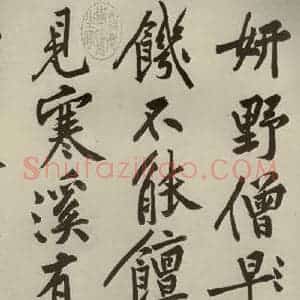 妍野僧旱
饑不能饘
見寒溪有
Shufaziliao.COM